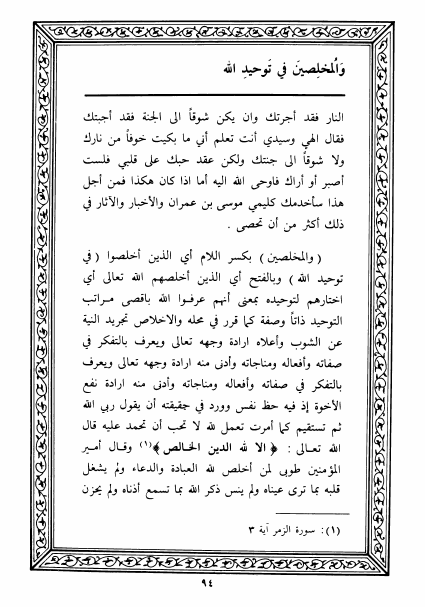 وَالْمُخلِصِينَ فِي تَوحيدِ الله
النار فقد أجرتك وان يكن شوقاً الى الجنة فقد أجبتك
فقال الهي وسيدي أنت تعلم أني ما بكيت خوفاً من نارك
ولا شوقاً الى جنتك ولكن عقد حبك على قلبي فلست
أصبر أو أراك فاوحى الله اليه أما اذا كان هكذا فمن أجل
هذا سأخدمك كليمي موسى بن عمران والأخبار والآثار في
ذلك أكثر من أن تحصى .
( والمخلصين ) بكسر اللام أي الذين أخلصوا ( في
توحيد الله ) وبالفتح أي الذين أخلصهم الله تعالى أي
اختارهم لتوحيده بمعنى أنهم عرفـوا الله باقصى مـراتب
التوحيد ذاتاً وصفة كما قرر في محله والاخلاص تجريد النية
عن الشوب وأعلاه ارادة وجهه تعالى ويعرف بالتفكر في
صفاته وأفعاله ومناجاته وأدنى منه ارادة وجهه تعالى ويعرف
بالتفكر في صفاته وأفعاله ومناجاته وأدنى منه ارادة نفع
الأخوة إذ فيه حظ نفس وورد في حقيقته أن يقول ربي الله
ثم تستقيم كما أمرت تعمل لله لا تحب أن تحمد عليه قال
الله تعـالى : ﴿ الا لله الدين الخـالص ﴾(١) وقـال أمـير
المؤمنين طوبى لمن أخلص لله العبادة والدعاء ولم يشغل
قلبه بما ترى عيناه ولم ينس ذكر الله بما تسمع أذناه ولم يحزن
(١): سورة الزمر آية ٣
٩٤